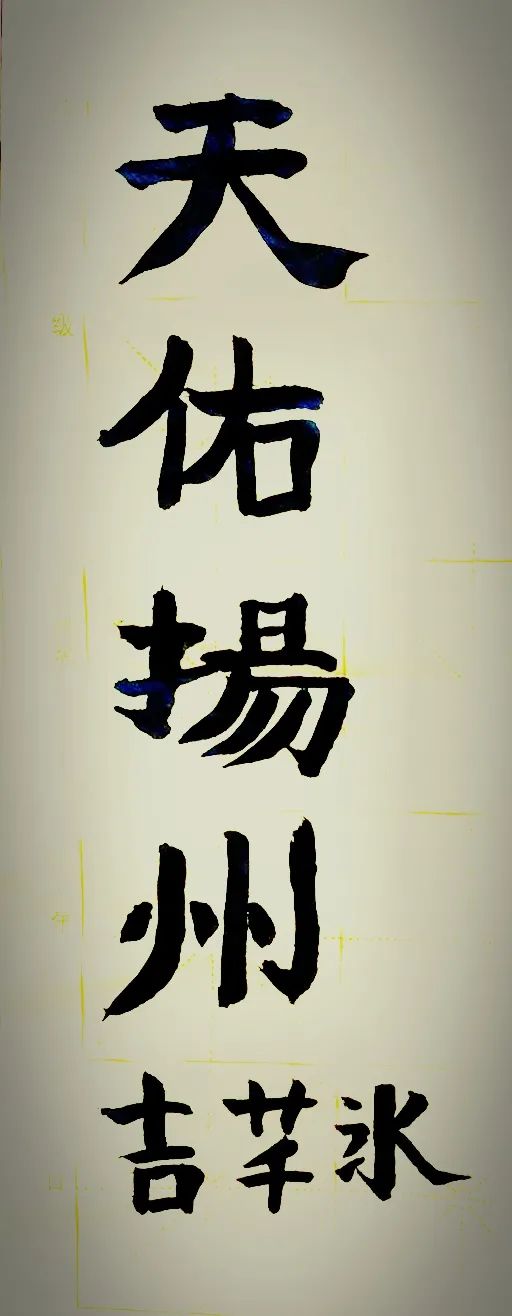 天佑揚州
吉芊冰